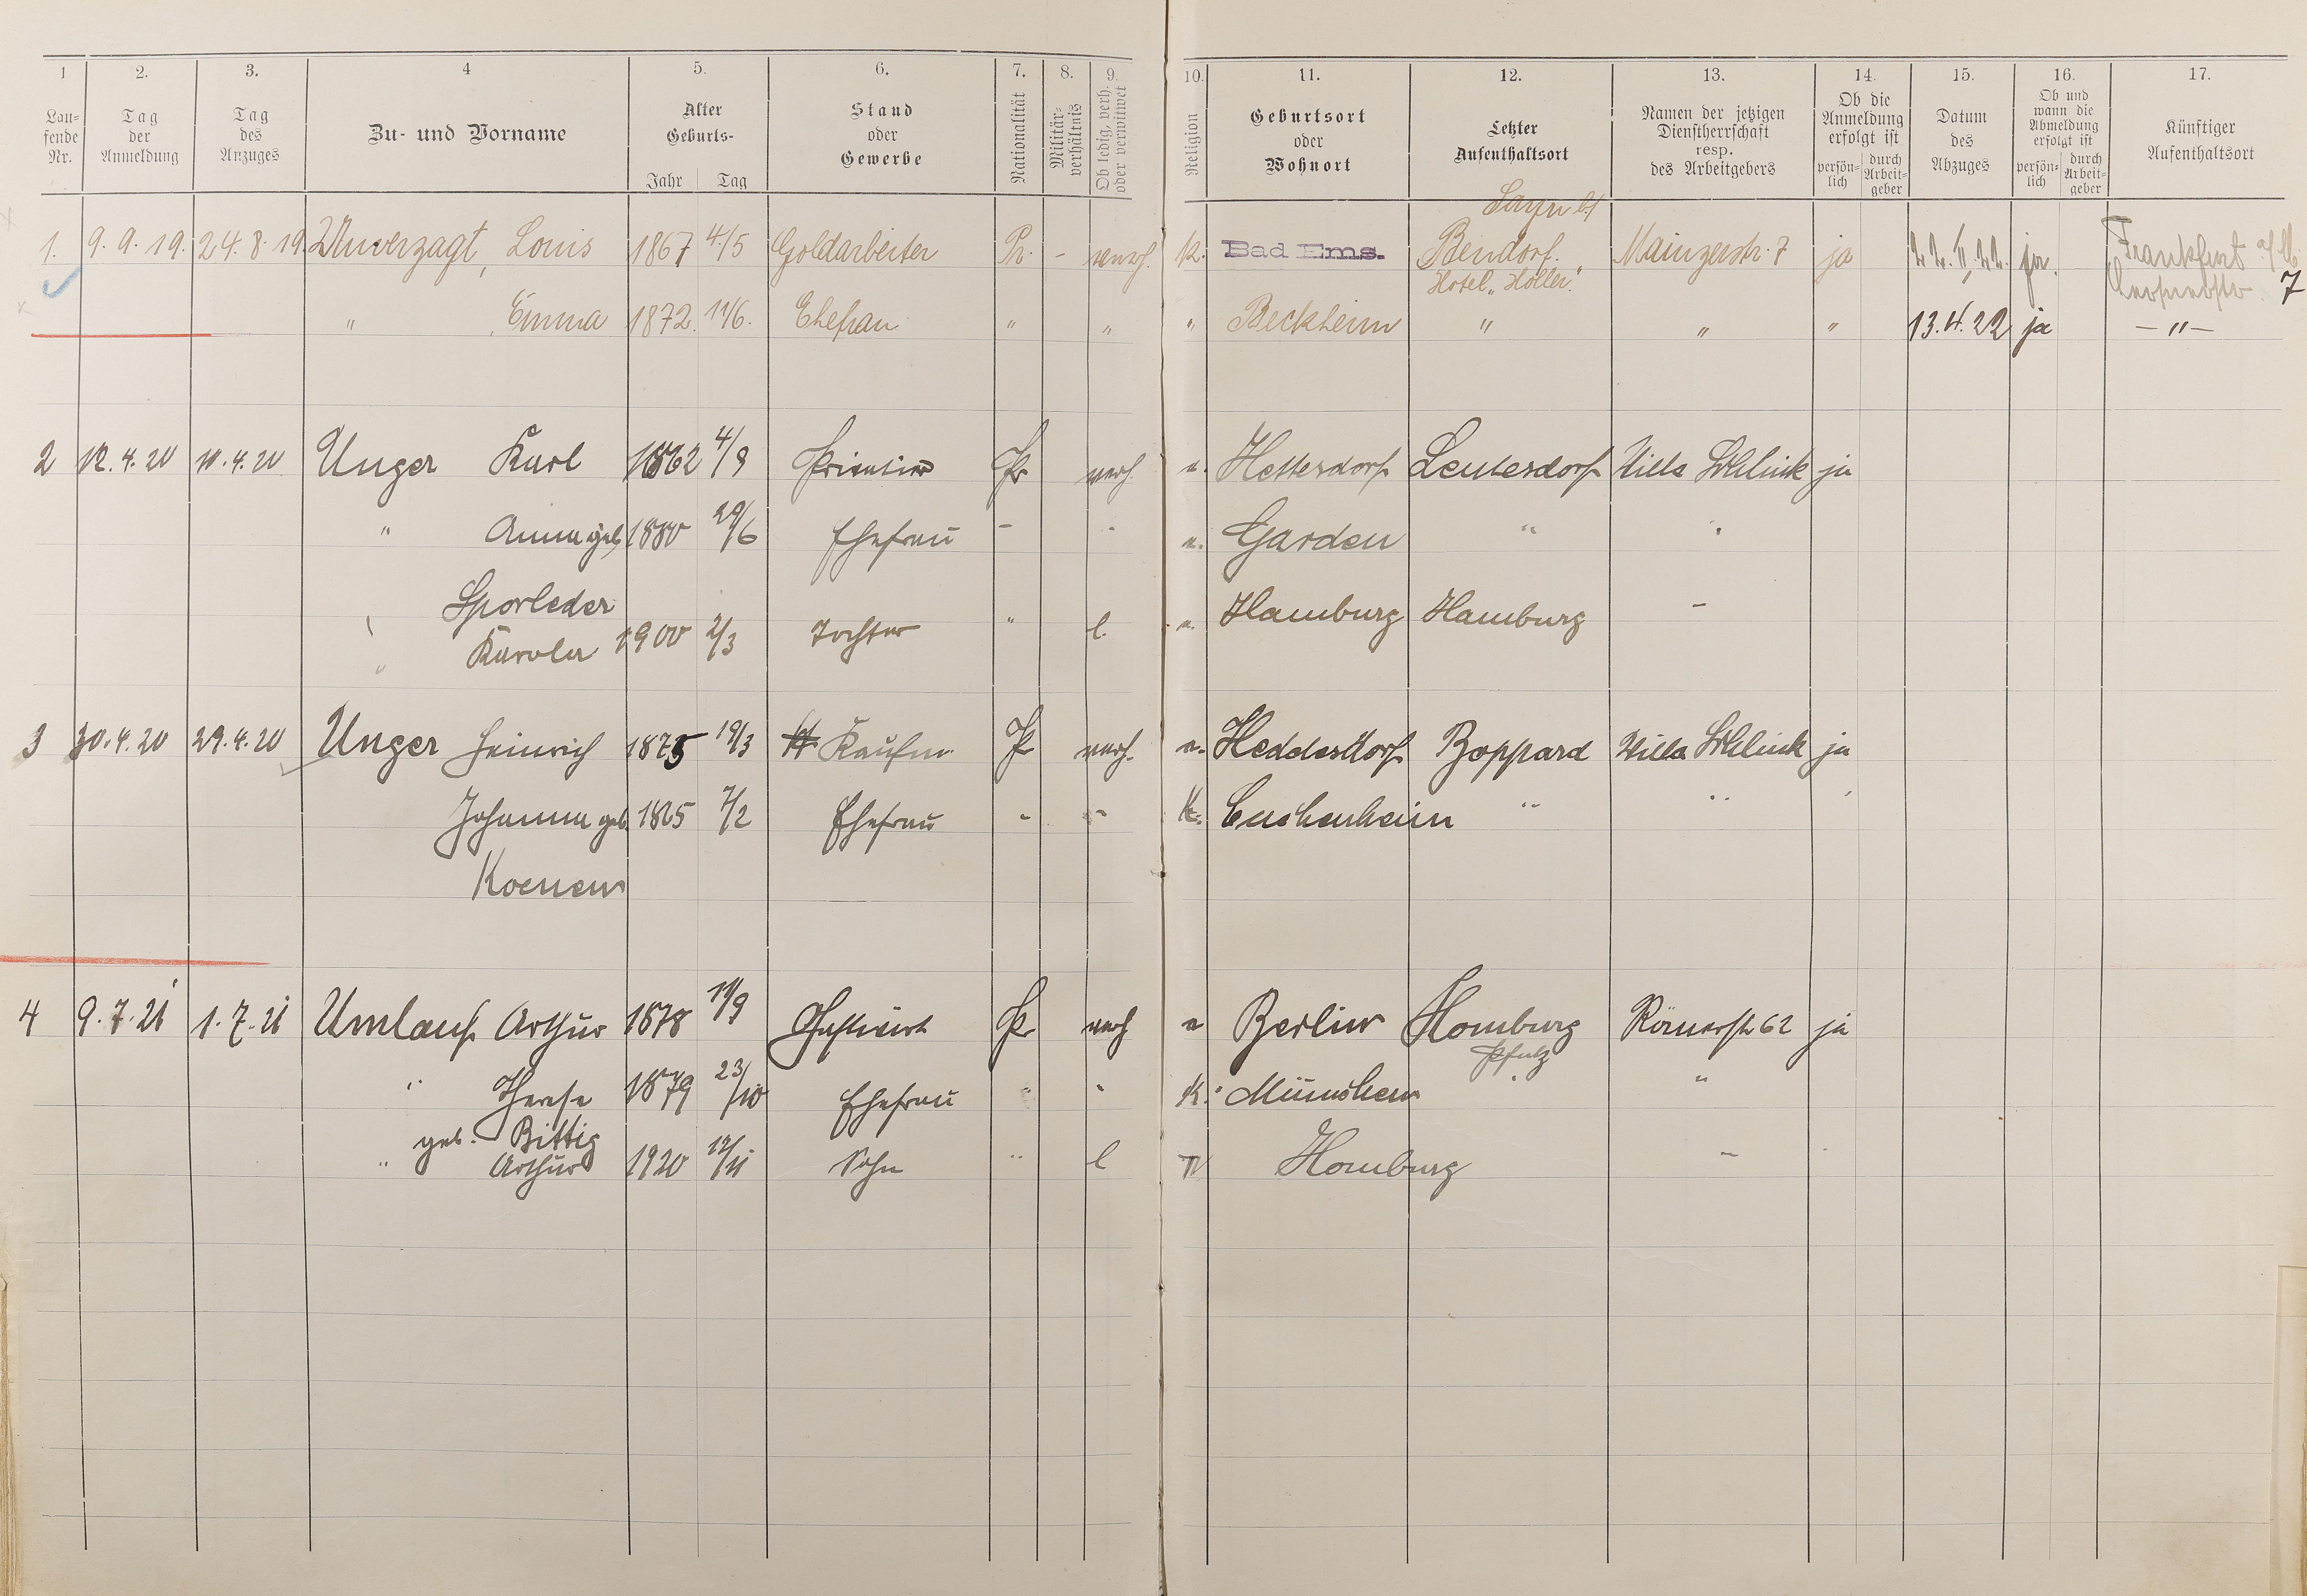 1 2. 3. 4 5. 6. 7. 8. 9. 10. 11. 12. 13. 14. 15. 16. 17.
Lau-
fende
Nr.
Tag
der
Anmeldung
Tag
des
Anzuges
Zu- und Vorname
Alter
Geburts-
Jahr Tag
Stand
oder
Gewerbe
Nationalität
Militär-
verhältnis
Ob ledig, verh.
oder verwitwet
Religion
Geburtsort
oder
Wohnort
Letzter
Aufenthaltsort
Namen der jetzigen
Dienstherrschaft
resp.
des Arbeitgebers
Ob die
Anmeldung
erfolgt ist
persön-
lich
durch
Arbeit-
geber
Datum
des
Abzuges
Ob und
wann die
Abmeldung
erfolgt ist
persön-
lich
durch
Arbeit-
geber
Künftiger
Aufenthaltsort
Sayn b/
1. 9. 9. 19. 24. 8. 19. Unverzagt, Louis 1867 4/5 Goldarbeiter Pr. - verh. k. Bad Ems. Bendorf. Mainzerstr. 7 ja 22. II. 22. ja. Frankfurt a/M.
Hotel „Höller." 7
" Emma 1872. 11/6. Ehefrau " " " Beckheim " " " 13.4.22 ja — " —
2 12.4.20 11.4.20 Unger Karl 1862 4/9 Pr verh. e. Hettersdorf Leutesdorf Villa Schlink ja
" Anna geb 1880 29/6 Ehefrau - " e. Garden " "
Sporleder
" Karola 1900 2/3 Tochter " l. e. Hamburg Hamburg -
3 30.4.20 29.4.20 Unger Heinrich 1875 19/3 Kaufm. Pr verh. e. Heddesdorf Boppard Villa Schlink ja
Johanna geb. 1865 7/2 Ehefrau - - K. Cuchenheim " " "
Koenen
4 9.7.21 1.7.21 Umlauf Arthur 1878 11/9 Gastwirt Pr verh e Berlin Homburg Römerstr 62 ja
Pfalz
" Therese 1879 23/10 Ehefrau " " K. München " "
geb. Bittig
" Arthur 1920 12/11 Sohn " l Homburg -